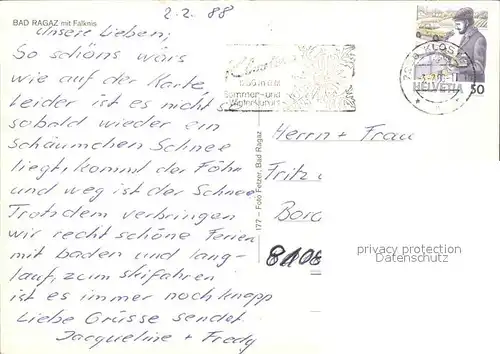 2.2.88
BAD RAGAZ mit Falknis
Unsere Lieben:
So schöns wärs
wie auf der Karte,
Leider ist es nicht so
sobald wieder ein
Schäumchen Schnee
liegt, kommt der Föhn
und weg ist der Schnee
Trotzdem verbringen
wir recht schöne Ferien
mit baden und lang-
lauf, zum skifahren
ist es immer noch knapp
Liebe Grüsse sendet
Jacqueline + Fredy
177 – Foto Fetzer, Bad Ragaz
Sommer- und
Winterkurort
KLOSTERS
HELVETIA 50
Herrn + Frau
Fritz
8108
privacy protection
Datenschutz